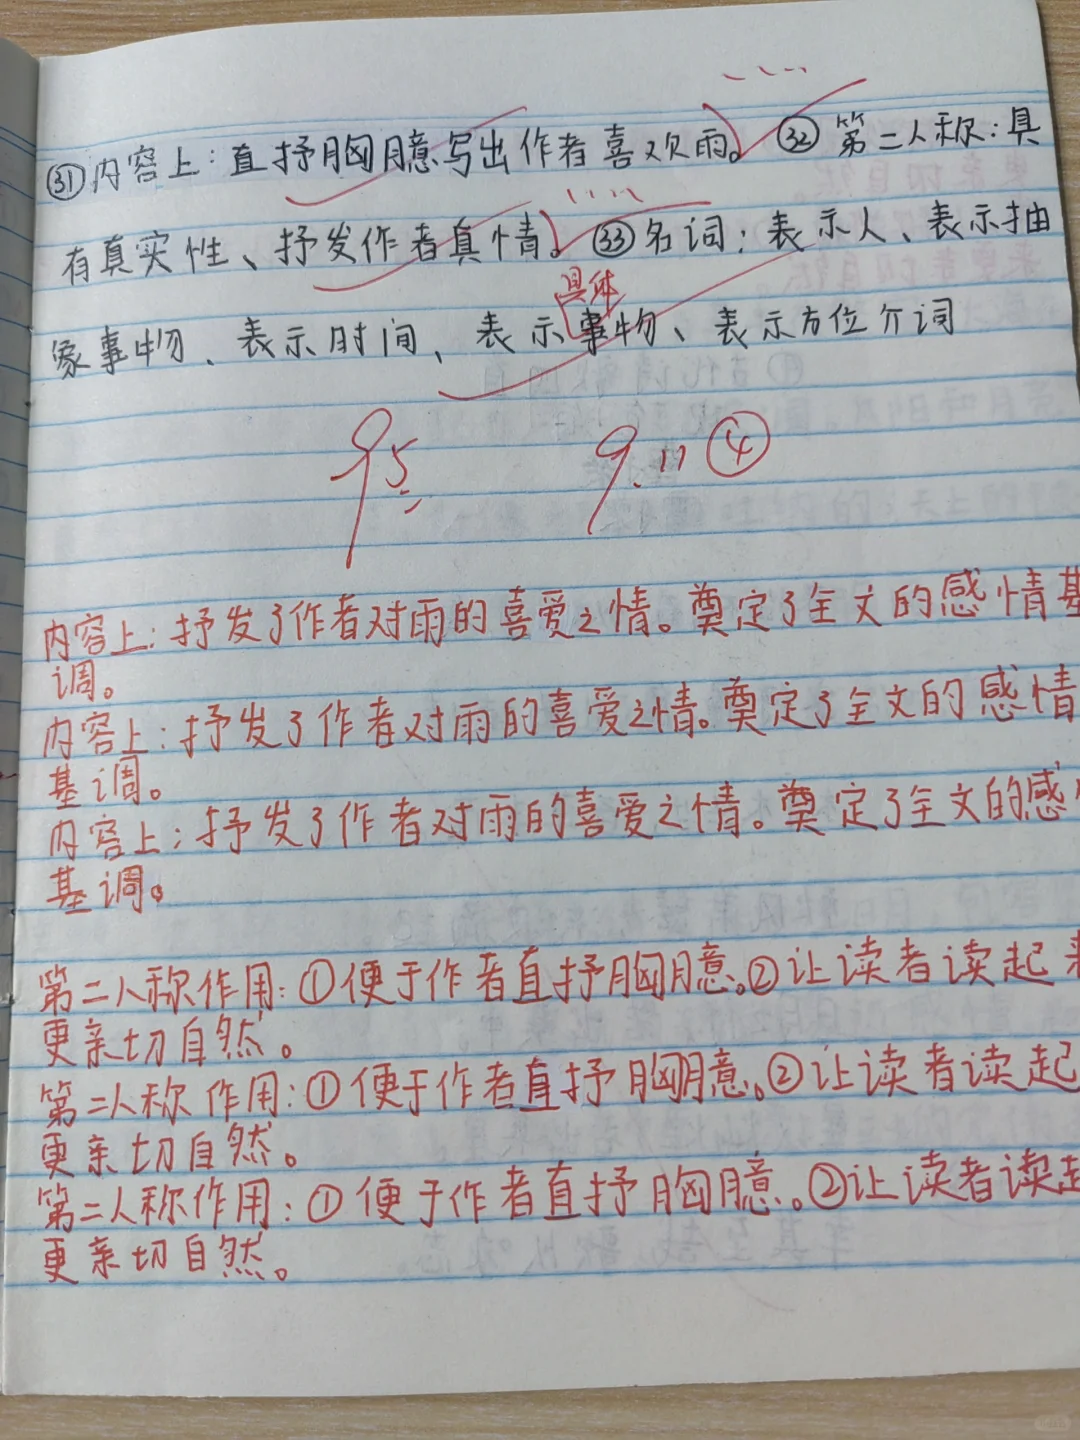 ㉛内容上：直抒胸臆写出作者喜欢雨。㉜第二人称：具
有真实性、抒发作者真情。㉝名词：表示人、表示抽
具体
象事物、表示时间、表示事物、表示方位介词
95
9.11 ④
内容上：抒发了作者对雨的喜爱之情。奠定了全文的感情基
调。
内容上：抒发了作者对雨的喜爱之情。奠定了全文的感情
基调。
内容上：抒发了作者对雨的喜爱之情。奠定了全文的感
基调。
第二人称作用：①便于作者直抒胸臆。②让读者读起来
更亲切自然。
第二人称作用：①便于作者直抒胸臆。②让读者读起
更亲切自然。
第二人称作用：①便于作者直抒胸臆。②让读者读起
更亲切自然。